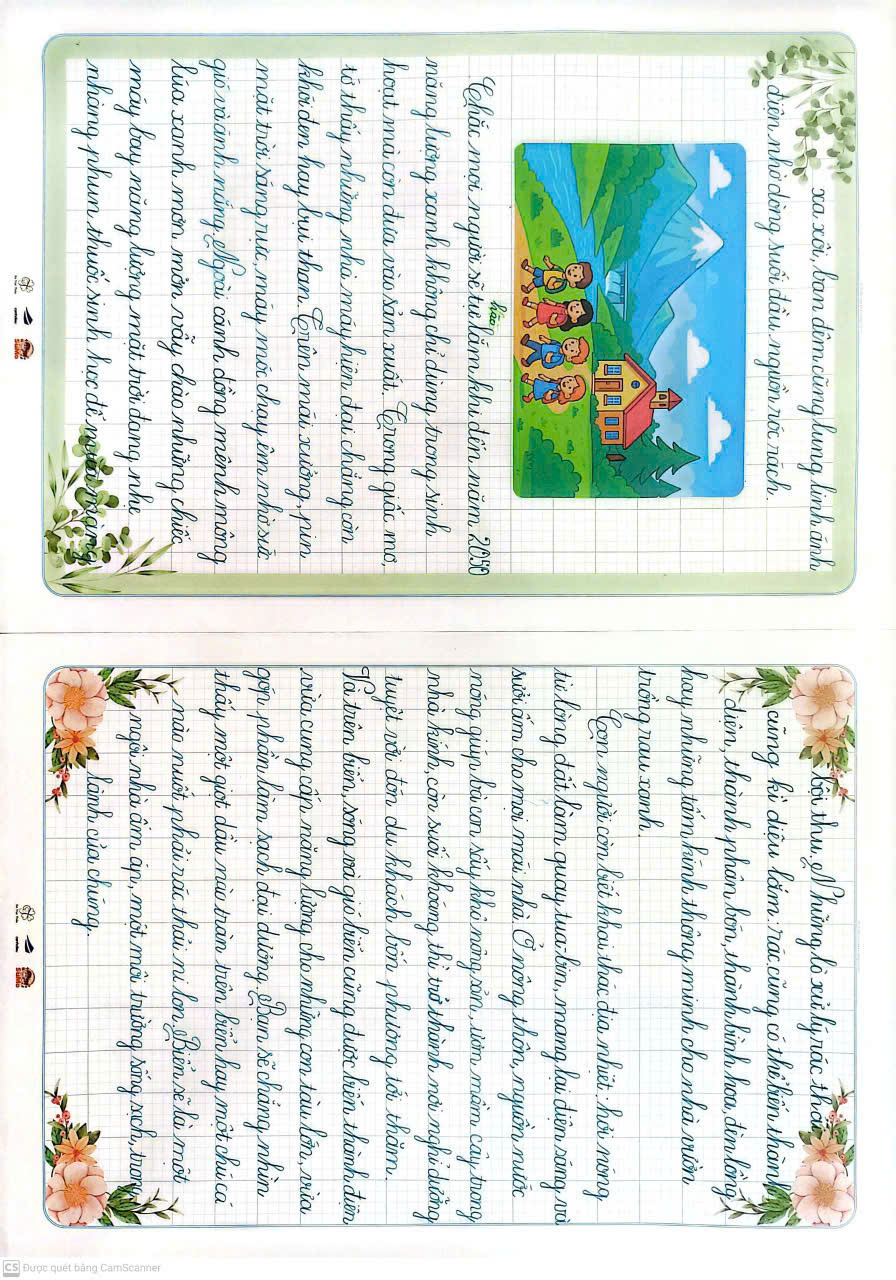 xa xôi, ban đêm cũng lung linh ánh
điện nhờ dòng suối đầu nguồn róc rách.
Chắc mọi người sẽ tự hào lắm khi đến năm 2050
năng lượng xanh không chỉ dùng trong sinh
hoạt mà còn đưa vào sản xuất. Trong giấc mơ,
tớ thấy những nhà máy hiện đại chẳng còn
khói đen hay bụi than. Trên mái xưởng, pin
mặt trời sáng rực, máy móc chạy êm nhờ sức
gió và ánh nắng. Ngoài cánh đồng mênh mông
lúa xanh mơn mởn vẫy chào những chiếc
máy bay năng lượng mặt trời đang nhẹ
nhàng phun thuốc sinh học để mùa màng
bội thu. Những lò xử lý rác thải
cũng kì diệu lắm: rác cũng có thể biến thành
điện, thành phân bón, thành bình hoa, đèn lồng
hay những tấm kính thông minh cho nhà vườn
trồng rau xanh.
Con người còn biết khai thác địa nhiệt: hơi nóng
từ lòng đất làm quay tua-bin, mang lại điện sáng và
sưởi ấm cho mọi mái nhà. Ở nông thôn, nguồn nước
nóng giúp bà con sấy khô nông sản, ươm mầm cây trong
nhà kính, còn suối khoáng thì trở thành nơi nghỉ dưỡng
tuyệt vời đón du khách bốn phương tới thăm.
Và trên biển, sóng và gió biển cũng được biến thành điện
vừa cung cấp năng lượng cho những con tàu lớn, vừa
góp phần làm sạch đại dương. Bạn sẽ chẳng nhìn
thấy một giọt dầu nào tràn trên biển hay một chú cá
nào nuốt phải rác thải ni lon. Biển sẽ là một
ngôi nhà ấm áp, một môi trường sống sạch, trong
lành của chúng.
CS Được quét bằng CamScanner